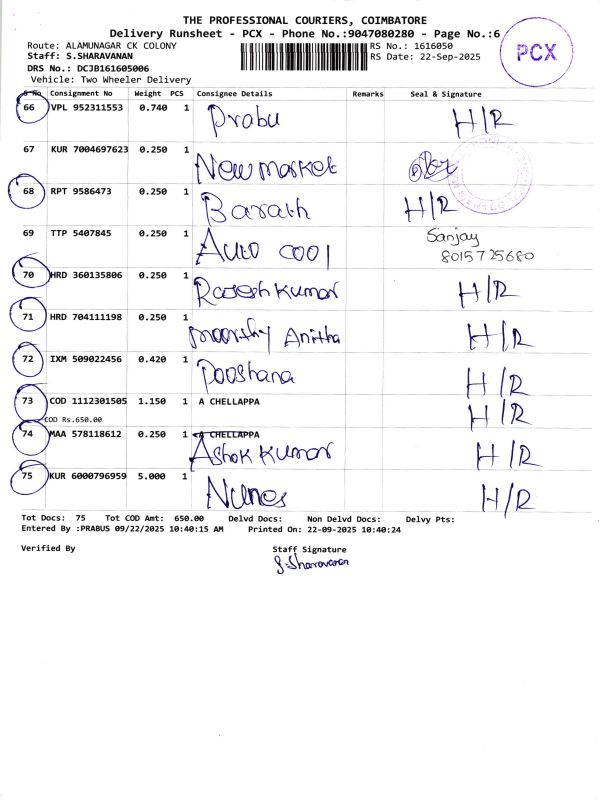 THE PROFESSIONAL COURIERS, COIMBATORE
Delivery Runsheet - PCX - Phone No.:9047080280 - Page No.:6
PCX
Route: ALAMUNAGAR CK COLONY
RS No.: 1616050
Staff: S.SHARAVANAN
RS Date: 22-Sep-2025
DRS No.: DCJB161605006
Vehicle: Two Wheeler Delivery
S No Consignment No Weight PCS Consignee Details Remarks Seal & Signature
66 VPL 952311553 0.740 1 Prabu H/R
67 KUR 7004697623 0.250 1 New market
68 RPT 9586473 0.250 1 Barath H/R
69 TTP 5407845 0.250 1 Auto cool Sanjay
8015725680
70 HRD 360135806 0.250 1 Rajesh Kumar H/R
71 HRD 704111198 0.250 1 moorthy Anitha H/R
72 IXM 509022456 0.420 1 Pooshana H/R
73 COD 1112301505 1.150 1 A CHELLAPPA H/R
COD Rs.650.00
74 MAA 578118612 0.250 1 A CHELLAPPA
Ashok Kumar H/R
75 KUR 6000796959 5.000 1 Nunes H/R
Tot Docs: 75 Tot COD Amt: 650.00 Delvd Docs: Non Delvd Docs: Delvy Pts:
Entered By :PRABUS 09/22/2025 10:40:15 AM Printed On: 22-09-2025 10:40:24
Verified By Staff Signature
S.Sharavanan